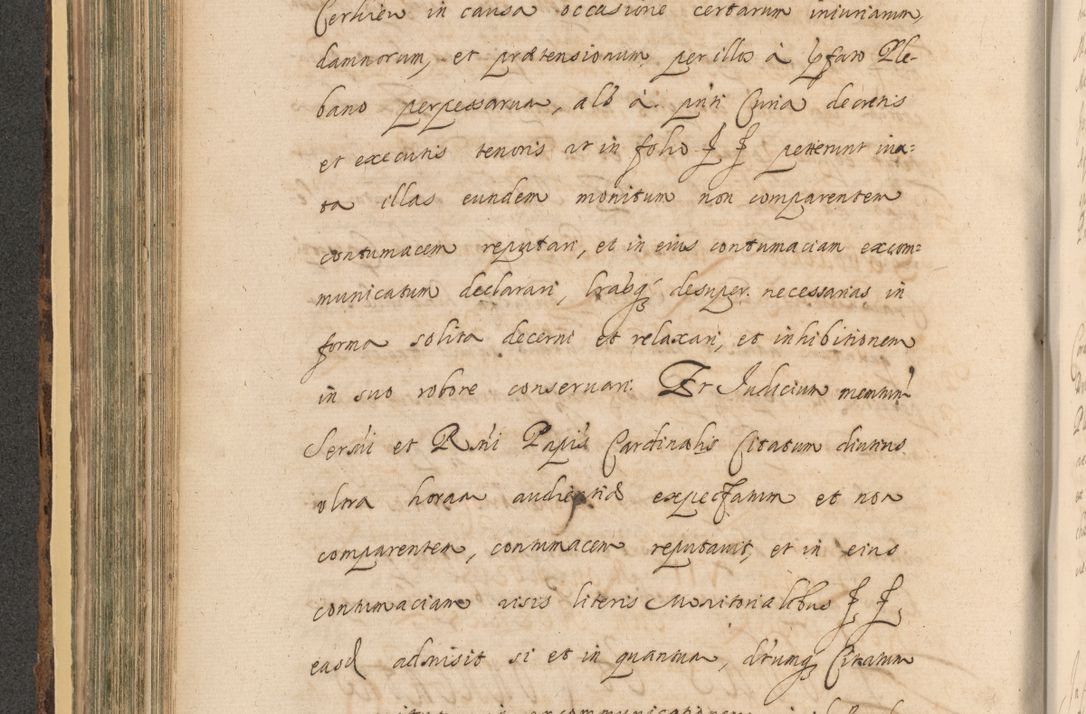 Cerhien in causa occasione certarum iniuriarum,
damnorum, et praetensionum, per illos à Ipsato Ple-
bano perpessarum, alb à pnti Curia decretis
et executis tenoris ut in folio petierunt iux:
ta illas eundem monitum non comparentem
contumacem reputari, et in eius contumaciam excom:
municatum declarari, lrasq desuper necessarias in
forma solita decerni et relaxari, et inhibitionem
in suo robore conservari. Et Judicium
Sersii et Rmi Cardinalis Citatum diutius
ultra horam audientiae expectatum et non
comparentem, contumacem reputavit, et in eius
contumaciam visis literis Monitorialibus
easd admisit si et in quantum, Citatum
excommunicationem